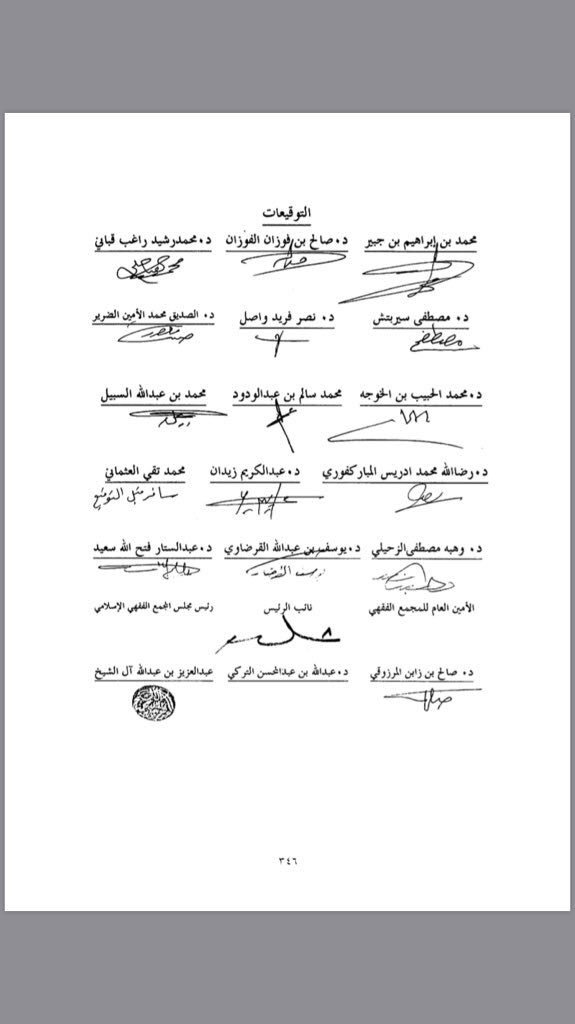 التوقيعات
محمد بن إبراهيم بن جبير د. صالح بن فوزان الفوزان د. محمد رشيد راغب قباني
د. مصطفى سيريتش د. نصر فريد واصل د. الصديق محمد الأمين الضرير
مصطفى
د. محمد الحبيب بن الخوجه محمد سالم بن عبدالودود محمد بن عبدالله السبيل
د. رضاالله محمد ادريس المباركفوري د. عبدالكريم زيدان محمد تقي العثماني
سافر قبل التوقيع
د. وهبه مصطفى الزحيلي د. يوسف بن عبدالله القرضاوي د. عبدالستار فتح الله سعيد
الأمين العام للمجمع الفقهي نائب الرئيس رئيس مجلس المجمع الفقهي الإسلامي
د. صالح بن زابن المرزوقي د. عبدالله بن عبدالمحسن التركي عبدالعزيز بن عبدالله آل الشيخ
٣٤٦